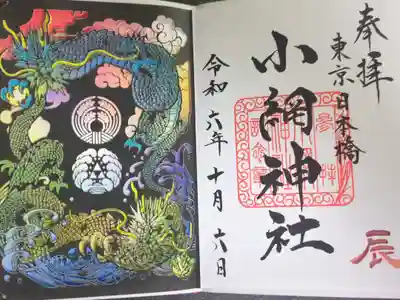 奉拝
東京日本橋
小網神社
令和六年十月六日
辰